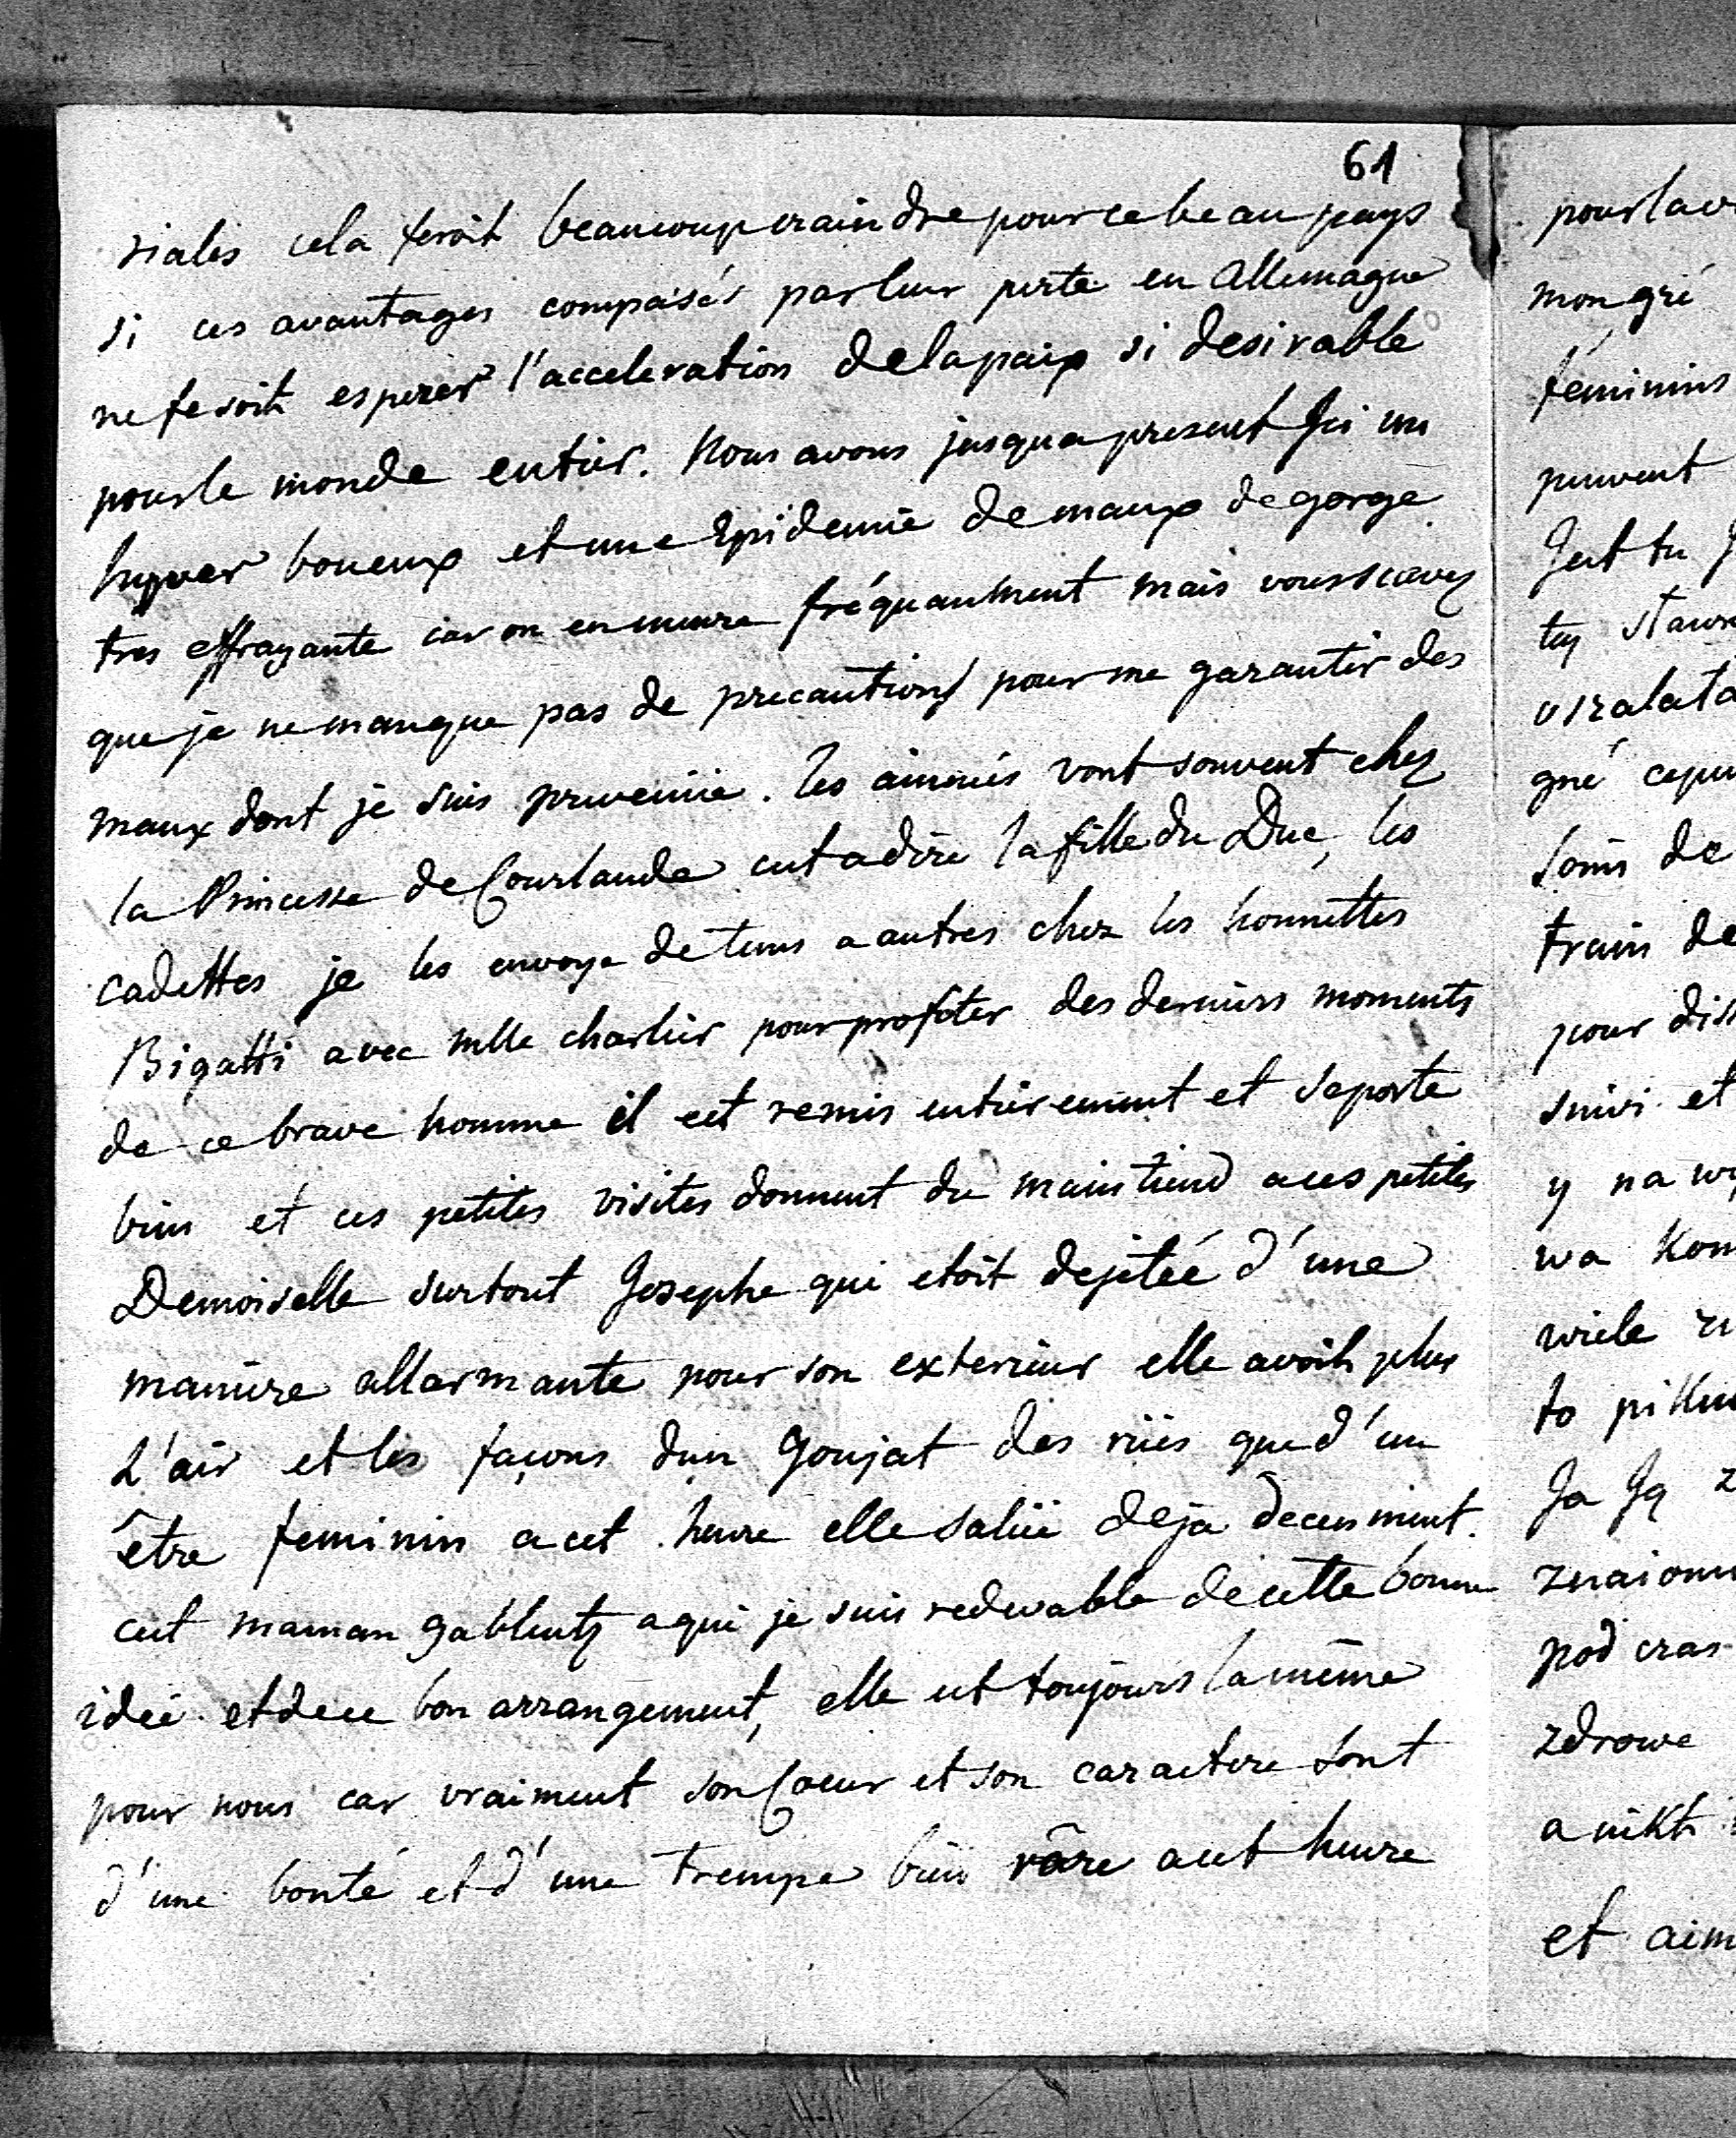 61
riales cela feroit beaucoup craindre pour ce beau pays
si ces avantages compasés par leur perte en Allemagne
ne fesoit esperer l'acceleration de la paix si desirable
pour le monde entier. Nous avons jusqua present Ici un
hyver boueux et une Epidemie de maux de gorge
tres effrayante car on en meure fréquament mais vous scavez
que je ne manque pas de precautions pour me garantir des
maux dont je suis prevenüe. les ainées vont souvent chez
la Princesse de Courlande cet a dire la fille du Duc, les
cadettes je les envoye de tems a autres chez les honnettes
Bigatti avec mlle charlier pour profiter des derniers moments
de ce brave homme il est remis entierement et se porte
bien et ces petites visites donnent du maintiend a ces petites
Demoiselle surtout Josephe qui etoit dejetée d'une
maniere allarmante pour son exterieur elle avoit plus
L'air et les façons dun Goujat des rües que d'un
être feminin a cet heure elle salüe deja decenment.
cet maman gablentz a qui je suis redevable de cette bonne
idée et de ce bon arrangement, elle est toujours la même
pour nous car vraiment son Coeur et son caractere sont
d'une bonté et d'une trempe bien râre a cet heure
pour la
mon gré
féminins
peuvent
Jest tu
tey
gné
soins de
train de
pour
suivi et
y na
wa
wiele
to
Ja Ją
pod czas
zdrowe
a nikt
et